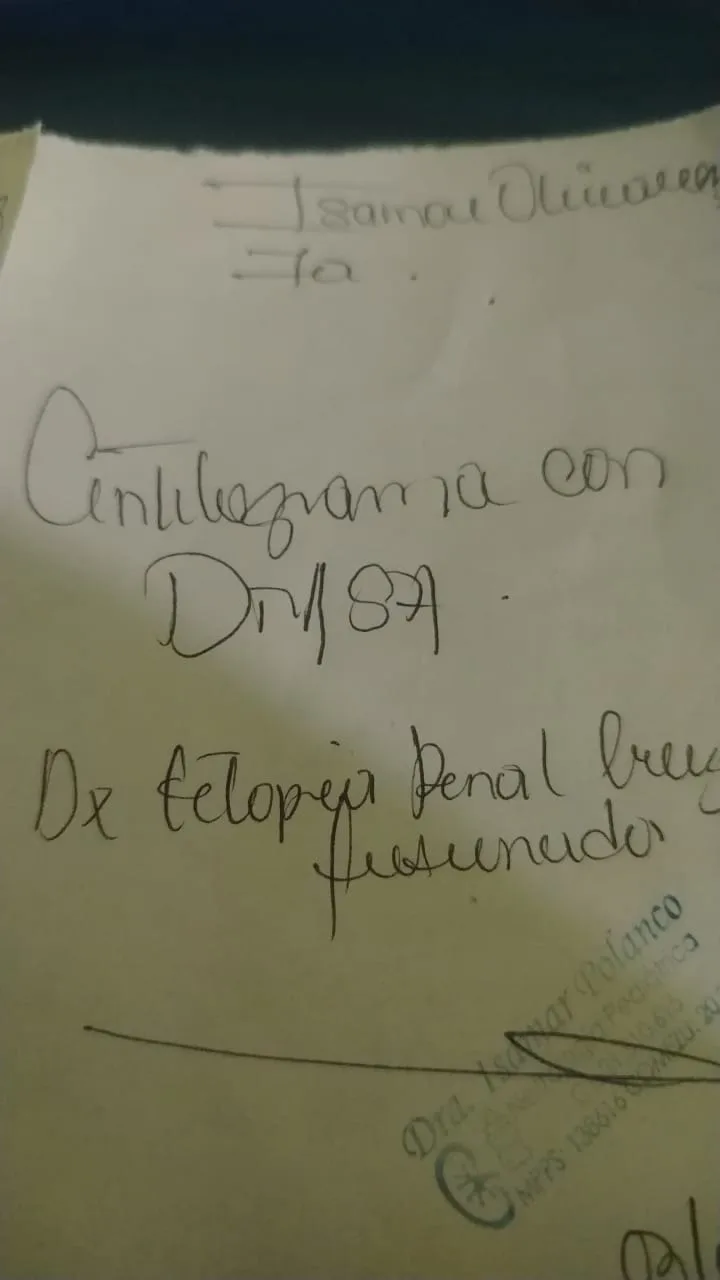 Isamar Olivares
7a.
Centellograma con
DMSA.
Dx Ectopia Renal
fusionado
Dra. Isamar Polanco
MPPS: 138616